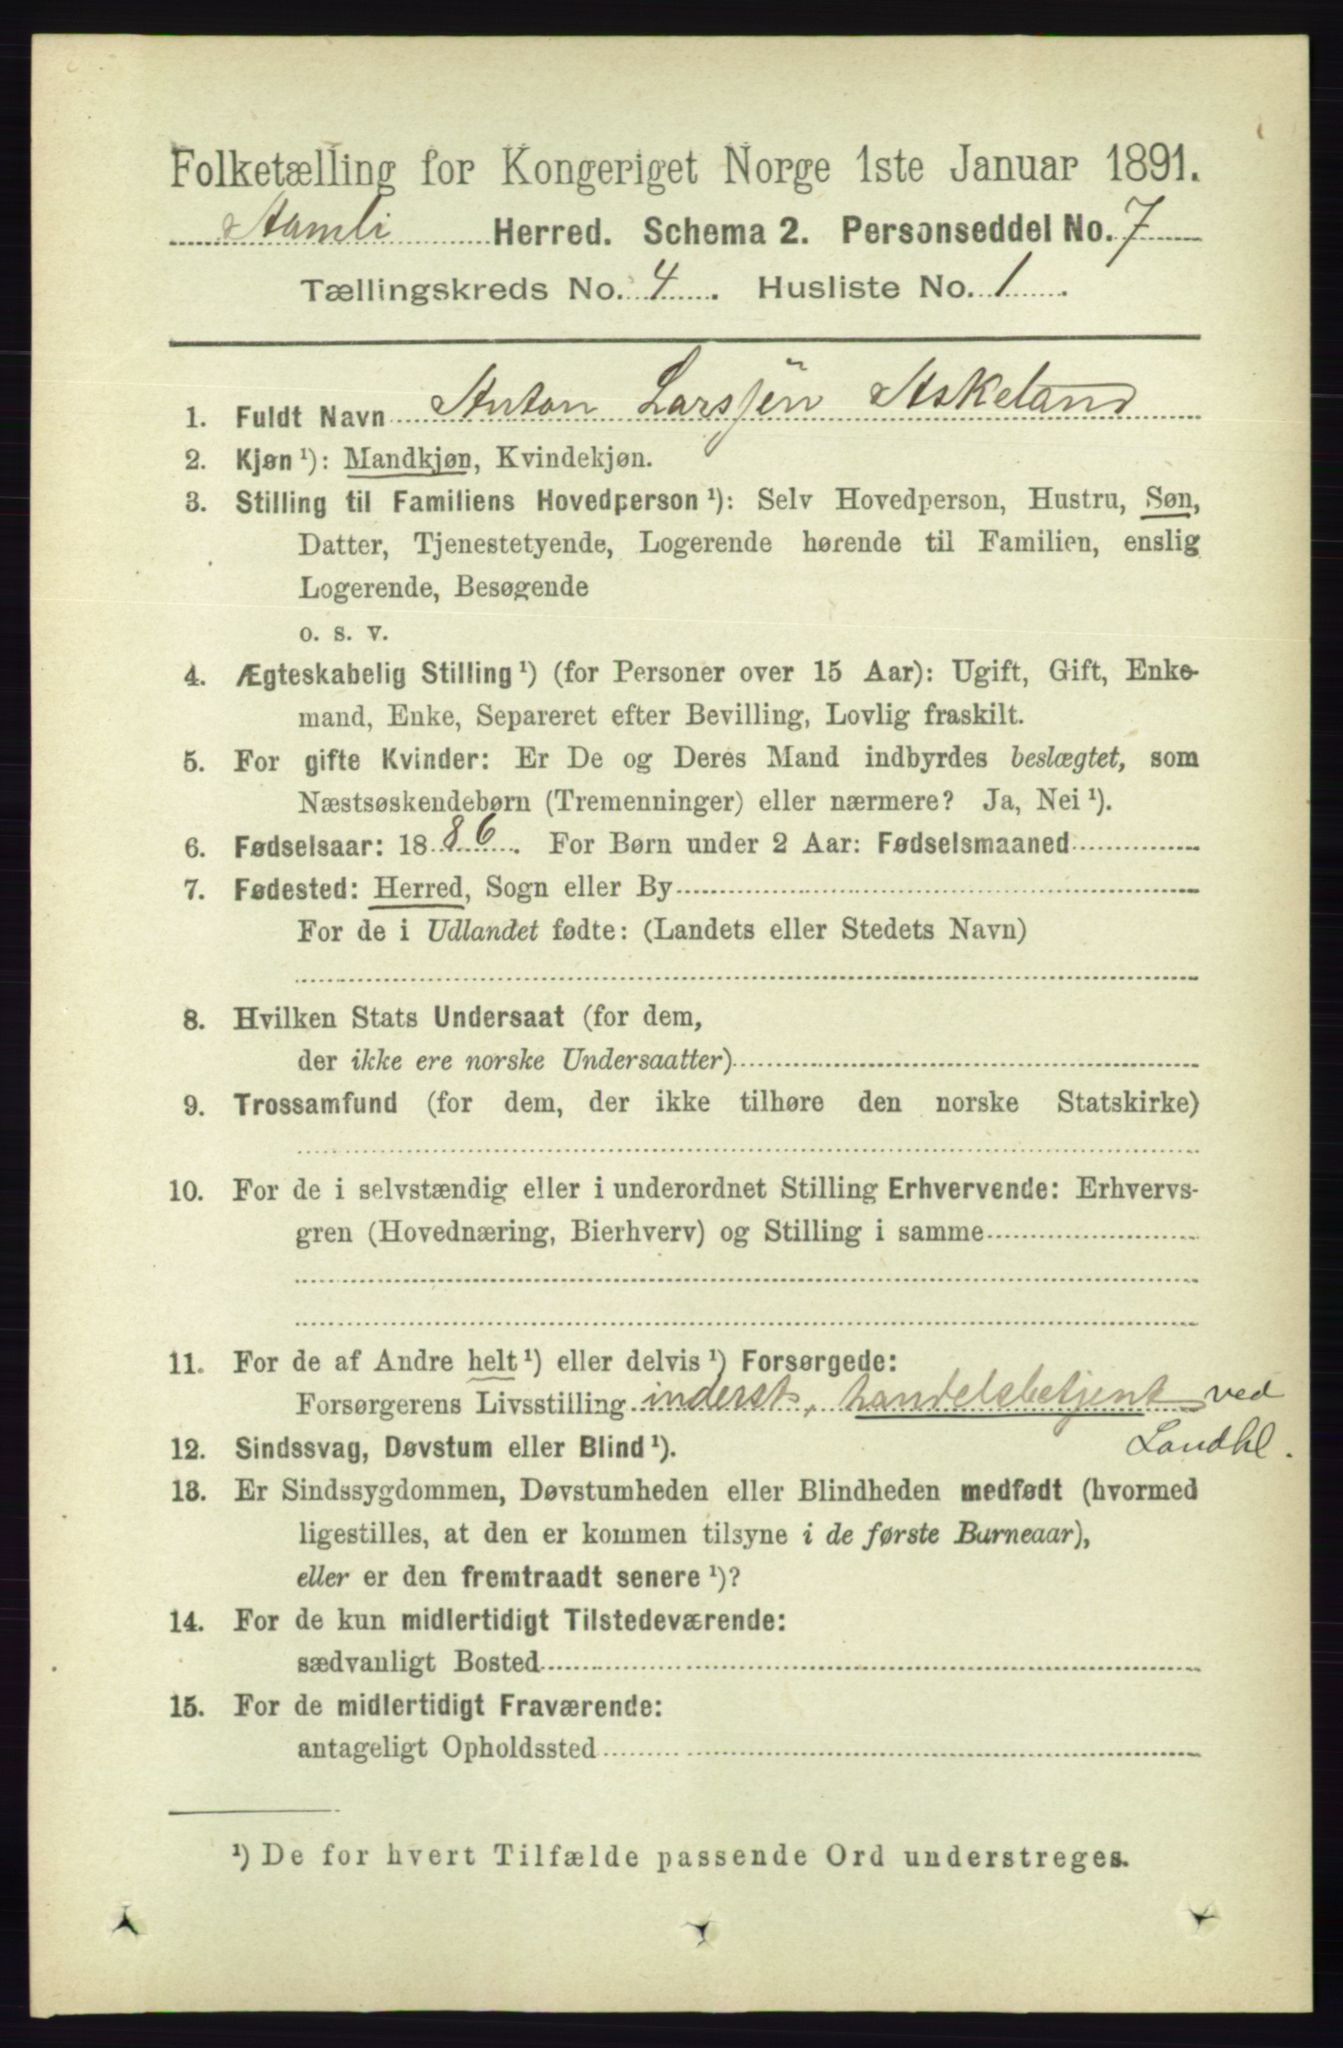 Folketælling for Kongeriget Norge 1ste Januar 1891.
Aamli Herred. Schema 2. Personseddel No. 7
Tællingskreds No. 4. Husliste No. 1.
1. Fuldt Navn Anton Larsjen Askeland
2. Kjøn ¹): Mandkjøn, Kvindekjøn.
3. Stilling til Familiens Hovedperson ¹): Selv Hovedperson, Hustru, Søn,
Datter, Tjenestetyende, Logerende hørende til Familien, enslig
Logerende, Besøgende
o. s. v.
4. Ægteskabelig Stilling ¹) (for Personer over 15 Aar): Ugift, Gift, Enke-
mand, Enke, Separeret efter Bevilling, Lovlig fraskilt.
5. For gifte Kvinder: Er De og Deres Mand indbyrdes beslægtet, som
Næstsøskendebørn (Tremenninger) eller nærmere? Ja, Nei ¹).
6. Fødselsaar: 1886. For Børn under 2 Aar: Fødselsmaaned
7. Fødested: Herred, Sogn eller By
For de i Udlandet fødte: (Landets eller Stedets Navn)
8. Hvilken Stats Undersaat (for dem,
der ikke ere norske Undersaatter)
9. Trossamfund (for dem, der ikke tilhøre den norske Statskirke)
10. For de i selvstændig eller i underordnet Stilling Erhvervende: Erhvervs-
gren (Hovednæring, Bierhverv) og Stilling i samme
11. For de af Andre helt ¹) eller delvis ¹) Forsørgede:
Forsørgerens Livsstilling inderst, handelsbetjent ved
Landhl.
12. Sindssvag, Døvstum eller Blind ¹).
13. Er Sindssygdommen, Døvstumheden eller Blindheden medfødt (hvormed
ligestilles, at den er kommen tilsyne i de første Barneaar),
eller er den fremtraadt senere ¹)?
14. For de kun midlertidigt Tilstedeværende:
sædvanligt Bosted
15. For de midlertidigt Fraværende:
antageligt Opholdssted
¹) De for hvert Tilfælde passende Ord understreges.